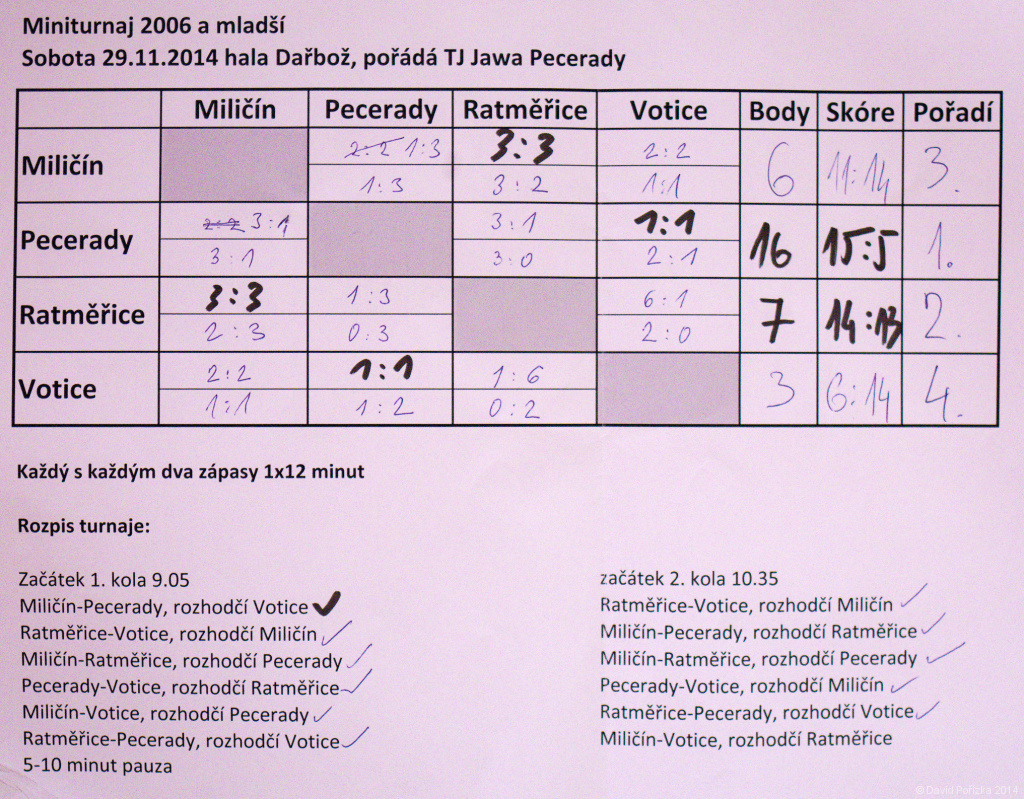 Miniturnaj 2006 a mladší
Sobota 29.11.2014 hala Dařbož, pořádá TJ Jawa Pecerady
Miličín Pecerady Ratměřice Votice Body Skóre Pořadí
2:2 1:3 3:3 2:2
Miličín 6 11:14 3.
1:3 3:2 1:1
2:2 3:1 3:1 1:1
Pecerady 16 15:5 1.
3:1 3:0 2:1
3:3 1:3 6:1
Ratměřice 7 14:13 2.
2:3 0:3 2:0
2:2 1:1 1:6
Votice 3 6:14 4.
1:1 1:2 0:2
Každý s každým dva zápasy 1x12 minut
Rozpis turnaje:
Začátek 1. kola 9.05
Miličín-Pecerady, rozhodčí Votice
Ratměřice-Votice, rozhodčí Miličín
Miličín-Ratměřice, rozhodčí Pecerady
Pecerady-Votice, rozhodčí Ratměřice
Miličín-Votice, rozhodčí Pecerady
Ratměřice-Pecerady, rozhodčí Votice
5-10 minut pauza
začátek 2. kola 10.35
Ratměřice-Votice, rozhodčí Miličín
Miličín-Pecerady, rozhodčí Ratměřice
Miličín-Ratměřice, rozhodčí Pecerady
Pecerady-Votice, rozhodčí Miličín
Ratměřice-Pecerady, rozhodčí Votice
Miličín-Votice, rozhodčí Ratměřice
© David Pořízka 2014